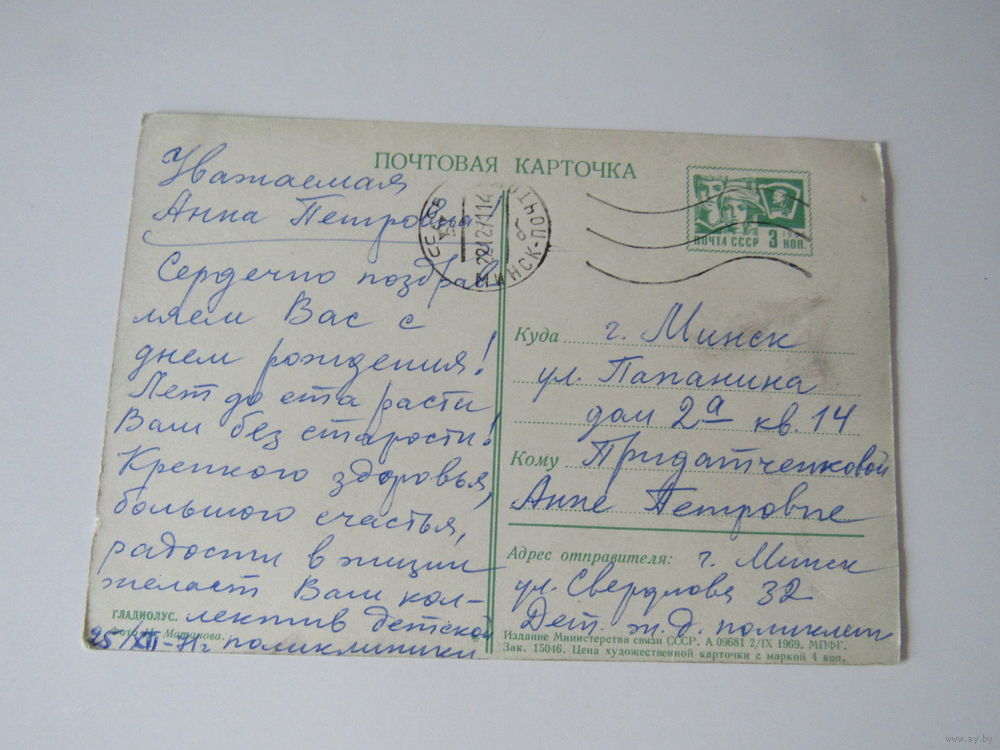 ПОЧТОВАЯ КАРТОЧКА
Уважаемая
Анна Петровна!
Сердечно поздрав
ляем Вас с
днем рождения!
Лет до ста расти
Вам без старости!
Крепкого здоровья,
большого счастья,
радости в жизни
желает Вам кол-
лектив детской
поликлиники
ГЛАДИОЛУС.
Фото Н. Матанова.
25/XII-71г
МИНСК-ПОЧТ
ПОЧТА СССР 3 КОП.
Куда г. Минск
ул. Папанина
дом 2а кв. 14
Кому Придатченковой
Анне Петровне
Адрес отправителя: г. Минск
ул. Свердлова 32
Дет. ж.д. поликлин
Издание Министерства связи СССР. А 09681 2/IX 1969. МПФГ.
Зак. 15046. Цена художественной карточки с маркой 4 коп.
www.ay.by